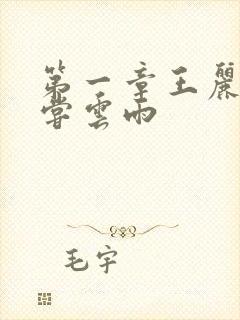 第一章王麗
嘗雲雨
毛宇